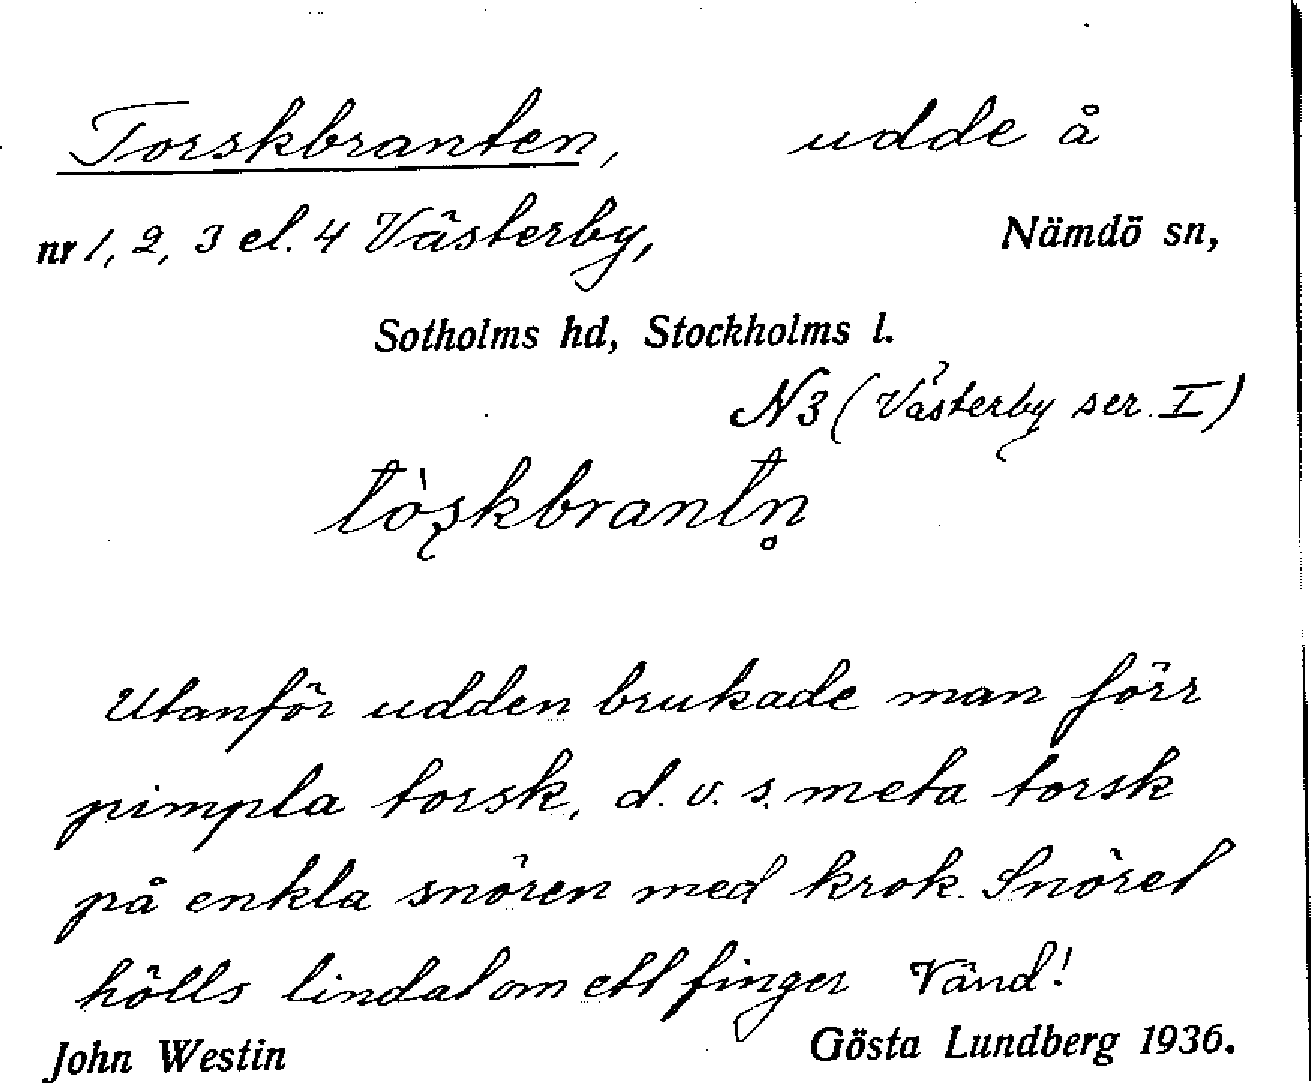 Torskbranten, udde å
nr 1, 2, 3 el. 4 Västerby, Nämdö sn,
Sotholms hd, Stockholms l.
N3 (Västerby ser. I)
tò̀ʂkbrantn̥
Utanför udden brukade man förr
pimpla torsk, d. v. s. meta torsk
på enkla snören med krok. Snöret
hölls lindat om ett finger Vänd!
John Westin Gösta Lundberg 1936.